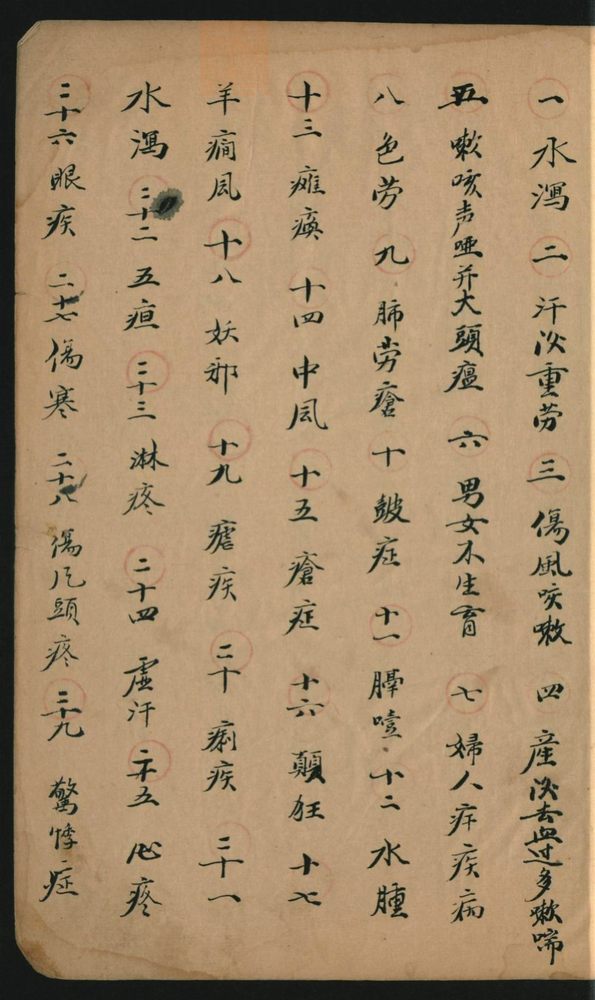 一 水瀉 二 汗後重劳 三 傷風咳嗽 四 産後去血过多嗽喘
五 嗽咳声哑并大頭瘟 六 男女不生育 七 婦人疾病
八 色劳 九 肺劳瘡 十 皷症 十一 膈噎 十二 水腫
十三 瘫痪 十四 中风 十五 瘡症 十六 顛狂 十七
羊癎风 十八 妖邪 十九 瘧疾 二十 痢疾 二十一
水瀉 二十二 五疸 二十三 淋疼 二十四 虚汗 二十五 心疼
二十六 眼疾 二十七 傷寒 二十八 傷风頭疼 二十九 驚悸症